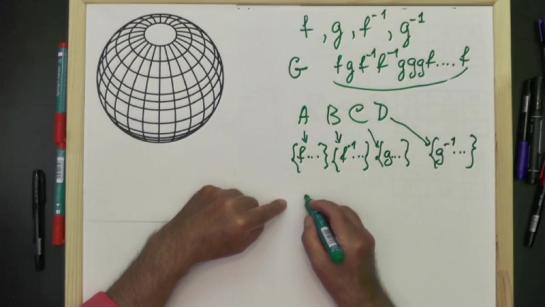 f, g, f⁻¹, g⁻¹
G f g f⁻¹ f⁻¹ g g g f .... f
A B C D
{f...} {f⁻¹...} {g..} {g⁻¹...}